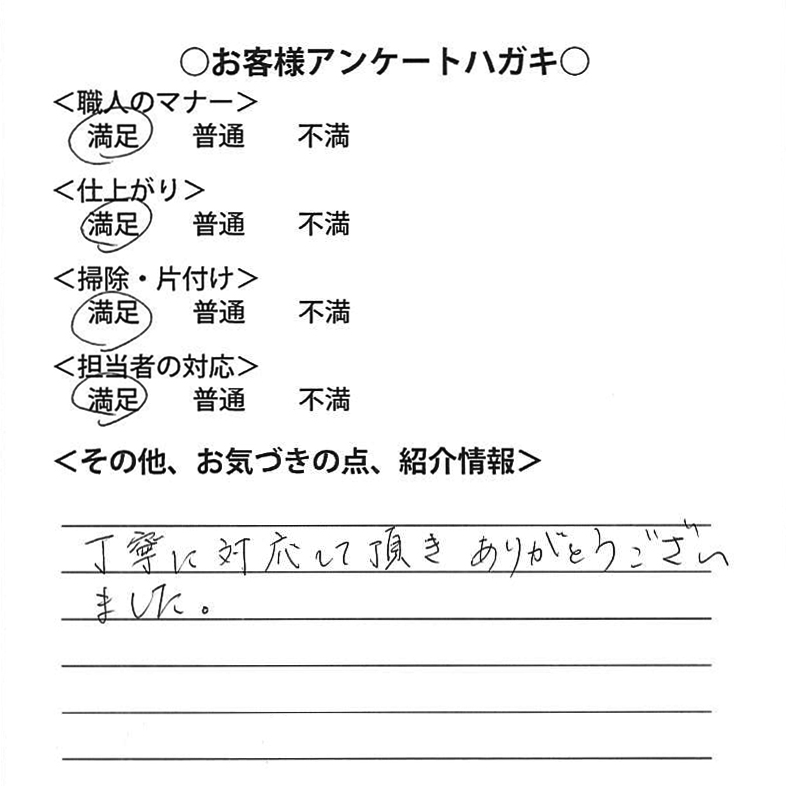 ○お客様アンケートハガキ○
＜職人のマナー＞
満足 普通 不満
＜仕上がり＞
満足 普通 不満
＜掃除・片付け＞
満足 普通 不満
＜担当者の対応＞
満足 普通 不満
＜その他、お気づきの点、紹介情報＞
丁寧に対応して頂きありがとうござい
ました。